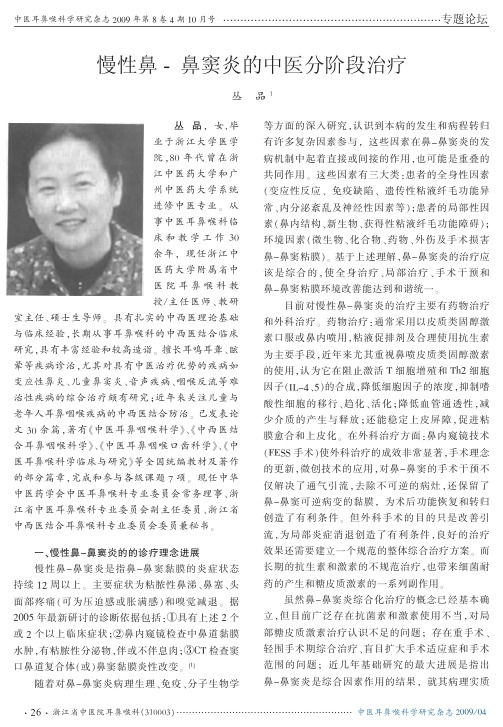 中医耳鼻喉科学研究杂志 2009 年第 8 卷 4 期 10 月号 ……专题论坛
慢性鼻 - 鼻窦炎的中医分阶段治疗
丛 品 1
丛 品，女,毕
业于浙江大学医学
院,80 年代曾在浙
江中医药大学和广
州中医药大学系统
进修中医专业。从
事中医耳鼻喉科临
床和教学工作 30
余年，现任浙江中
医药大学附属省中
医院耳鼻喉科教
授/主任医师、教研
室主任、硕士生导师。具有扎实的中西医理论基础
与临床经验,长期从事耳鼻喉科的中西医结合临床
研究,具有丰富经验和较高造诣。擅长耳鸣耳聋、眩
晕等疾病诊治,尤其对具有中医治疗优势的疾病如
变应性鼻炎、儿童鼻窦炎、音声疾病、咽喉反流等难
治性疾病的综合治疗颇有研究;近年来关注儿童与
老年人耳鼻咽喉疾病的中西医结合防治。已发表论
文 30 余篇,著有《中医耳鼻咽喉科学》、《中西医结
合耳鼻咽喉科学》、《中医耳鼻咽喉口齿科学》、《中
医耳鼻喉科学临床与研究》等全国统编教材及著作
的部分篇章,完成和参与各级课题 7 项。现任中华
中医药学会中医耳鼻喉科专业委员会常务理事、浙
江省中医耳鼻喉科专业委员会副主任委员,浙江省
中西医结合耳鼻喉科专业委员会委员兼秘书。
一、慢性鼻-鼻窦炎的的诊疗理念进展
慢性鼻-鼻窦炎是指鼻-鼻窦黏膜的炎症状态
持续 12 周以上。主要症状为粘脓性鼻涕、鼻塞、头
面部疼痛(可为压迫感或胀满感)和嗅觉减退。据
2005 年最新研讨的诊断依据包括:①具有上述 2 个
或 2 个以上临床症状;②鼻内窥镜检查中鼻道黏膜
水肿,有粘脓性分泌物,伴或不伴息肉;③CT 检查窦
口鼻道复合体(或)鼻窦黏膜炎性改变。[1]
随着对鼻-鼻窦炎病理生理、免疫、分子生物学
等方面的深入研究,认识到本病的发生和病程转归
有许多复杂因素参与，这些因素在鼻-鼻窦炎的发
病机制中起着直接或间接的作用,也可能是重叠的
共同作用。这些因素有三大类:患者的全身性因素
(变应性反应、免疫缺陷、遗传性粘液纤毛功能异
常、内分泌紊乱及神经性因素等);患者的局部性因
素(鼻内结构、新生物、获得性粘液纤毛功能障碍);
环境因素(微生物、化合物、药物、外伤及手术损害
鼻-鼻窦粘膜)。基于上述理解,鼻-鼻窦炎的治疗应
该是综合的,使全身治疗、局部治疗、手术干预和
鼻-鼻窦粘膜环境改善能达到和谐统一。
目前对慢性鼻-鼻窦炎的治疗主要有药物治疗
和外科治疗。药物治疗:通常采用以皮质类固醇激
素口服或鼻内喷用,粘液促排剂及合理使用抗生素
为主要手段,近年来尤其重视鼻喷皮质类固醇激素
的使用,认为它在阻止激活 T 细胞增殖和 Th2 细胞
因子(IL-4、5)的合成,降低细胞因子的浓度,抑制嗜
酸性细胞的移行、趋化、活化;降低血管通透性,减
少介质的产生与释放;还能稳定上皮屏障,促进粘
膜愈合和上皮化。在外科治疗方面:鼻内窥镜技术
(FESS 手术)使外科治疗的成效非常显著,手术理念
的更新,微创技术的应用,对鼻-鼻窦的手术干预不
仅解决了通气引流,去除不可逆的病灶,还保留了
鼻-鼻窦可逆病变的黏膜，为术后功能恢复和转归
创造了有利条件。但外科手术的目的只是改善引
流,为局部炎症消退创造了有利条件,良好的治疗
效果还需要建立一个规范的整体综合治疗方案。而
长期的抗生素和激素的不规范治疗,也带来细菌耐
药的产生和糖皮质激素的一系列副作用。
虽然鼻-鼻窦炎综合化治疗的概念已经基本确
立,但目前广泛存在抗菌素和激素使用不当,对局
部糖皮质激素治疗认识不足的问题；存在重手术、
轻围手术期综合治疗、盲目扩大手术适应症和手术
范围的问题；近几年基础研究的最大进展是指出
鼻-鼻窦炎是综合因素作用的结果，就其病理实质
· 26 · 浙江省中医院耳鼻喉科(310003)……中医耳鼻喉科学研究杂志 2009/04